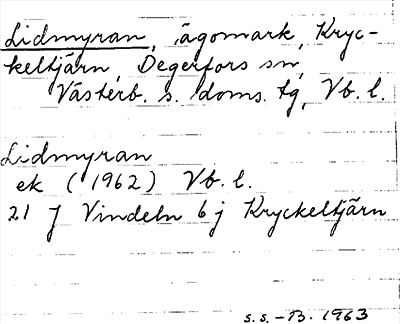 Lidmyran, ägomark, Kryc-
keltjärn, Degerfors sn,
Västerb. s. doms. tg, Vb. l.
Lidmyran
ek (1962) Vb. l.
21 J Vindeln 6 j Kryckeltjärn
s.s. - B. 1963